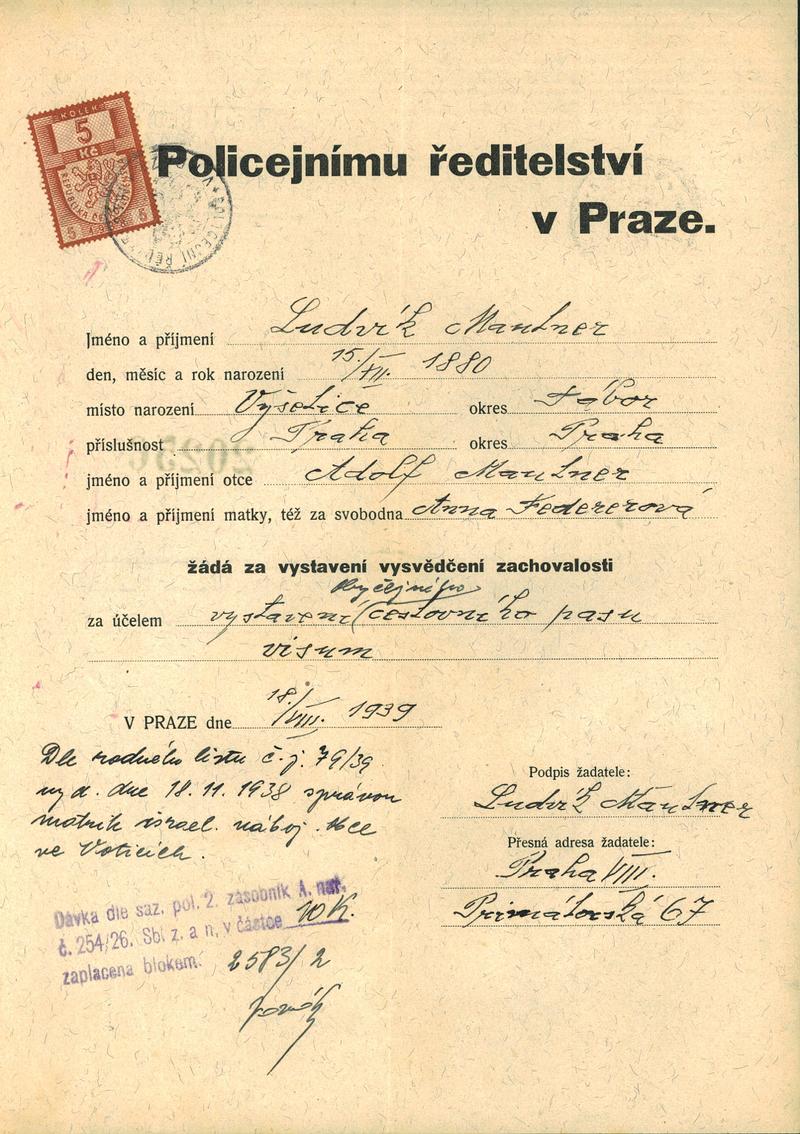 KOLEK
5
Kč
Policejnímu ředitelství
v Praze.
Jméno a příjmení Ludvík Mautner
den, měsíc a rok narození 15./VII. 1880
místo narození Vyšetice okres Tábor
příslušnost Praha okres Praha
jméno a příjmení otce Adolf Mautner
jméno a příjmení matky, též za svobodna Anna Federerová
žádá za vystavení vysvědčení zachovalosti
obyčejného
za účelem vystavení cestovního pasu
visum
V PRAZE dne 18./VIII. 1939
Dle rodného listu č. j. 79/39
vyd. dne 18. 11. 1938 správou
matrik israel. nábož. obce
ve Voticích.
Podpis žadatele:
Ludvík Mautner
Přesná adresa žadatele:
Praha VIII.
Primátorská 67
Dávka dle saz. pol. 2. zásobník A. nař.
č. 254/26. Sb. z. a n. v částce 10 K.
zaplacena blokem: 2583/2